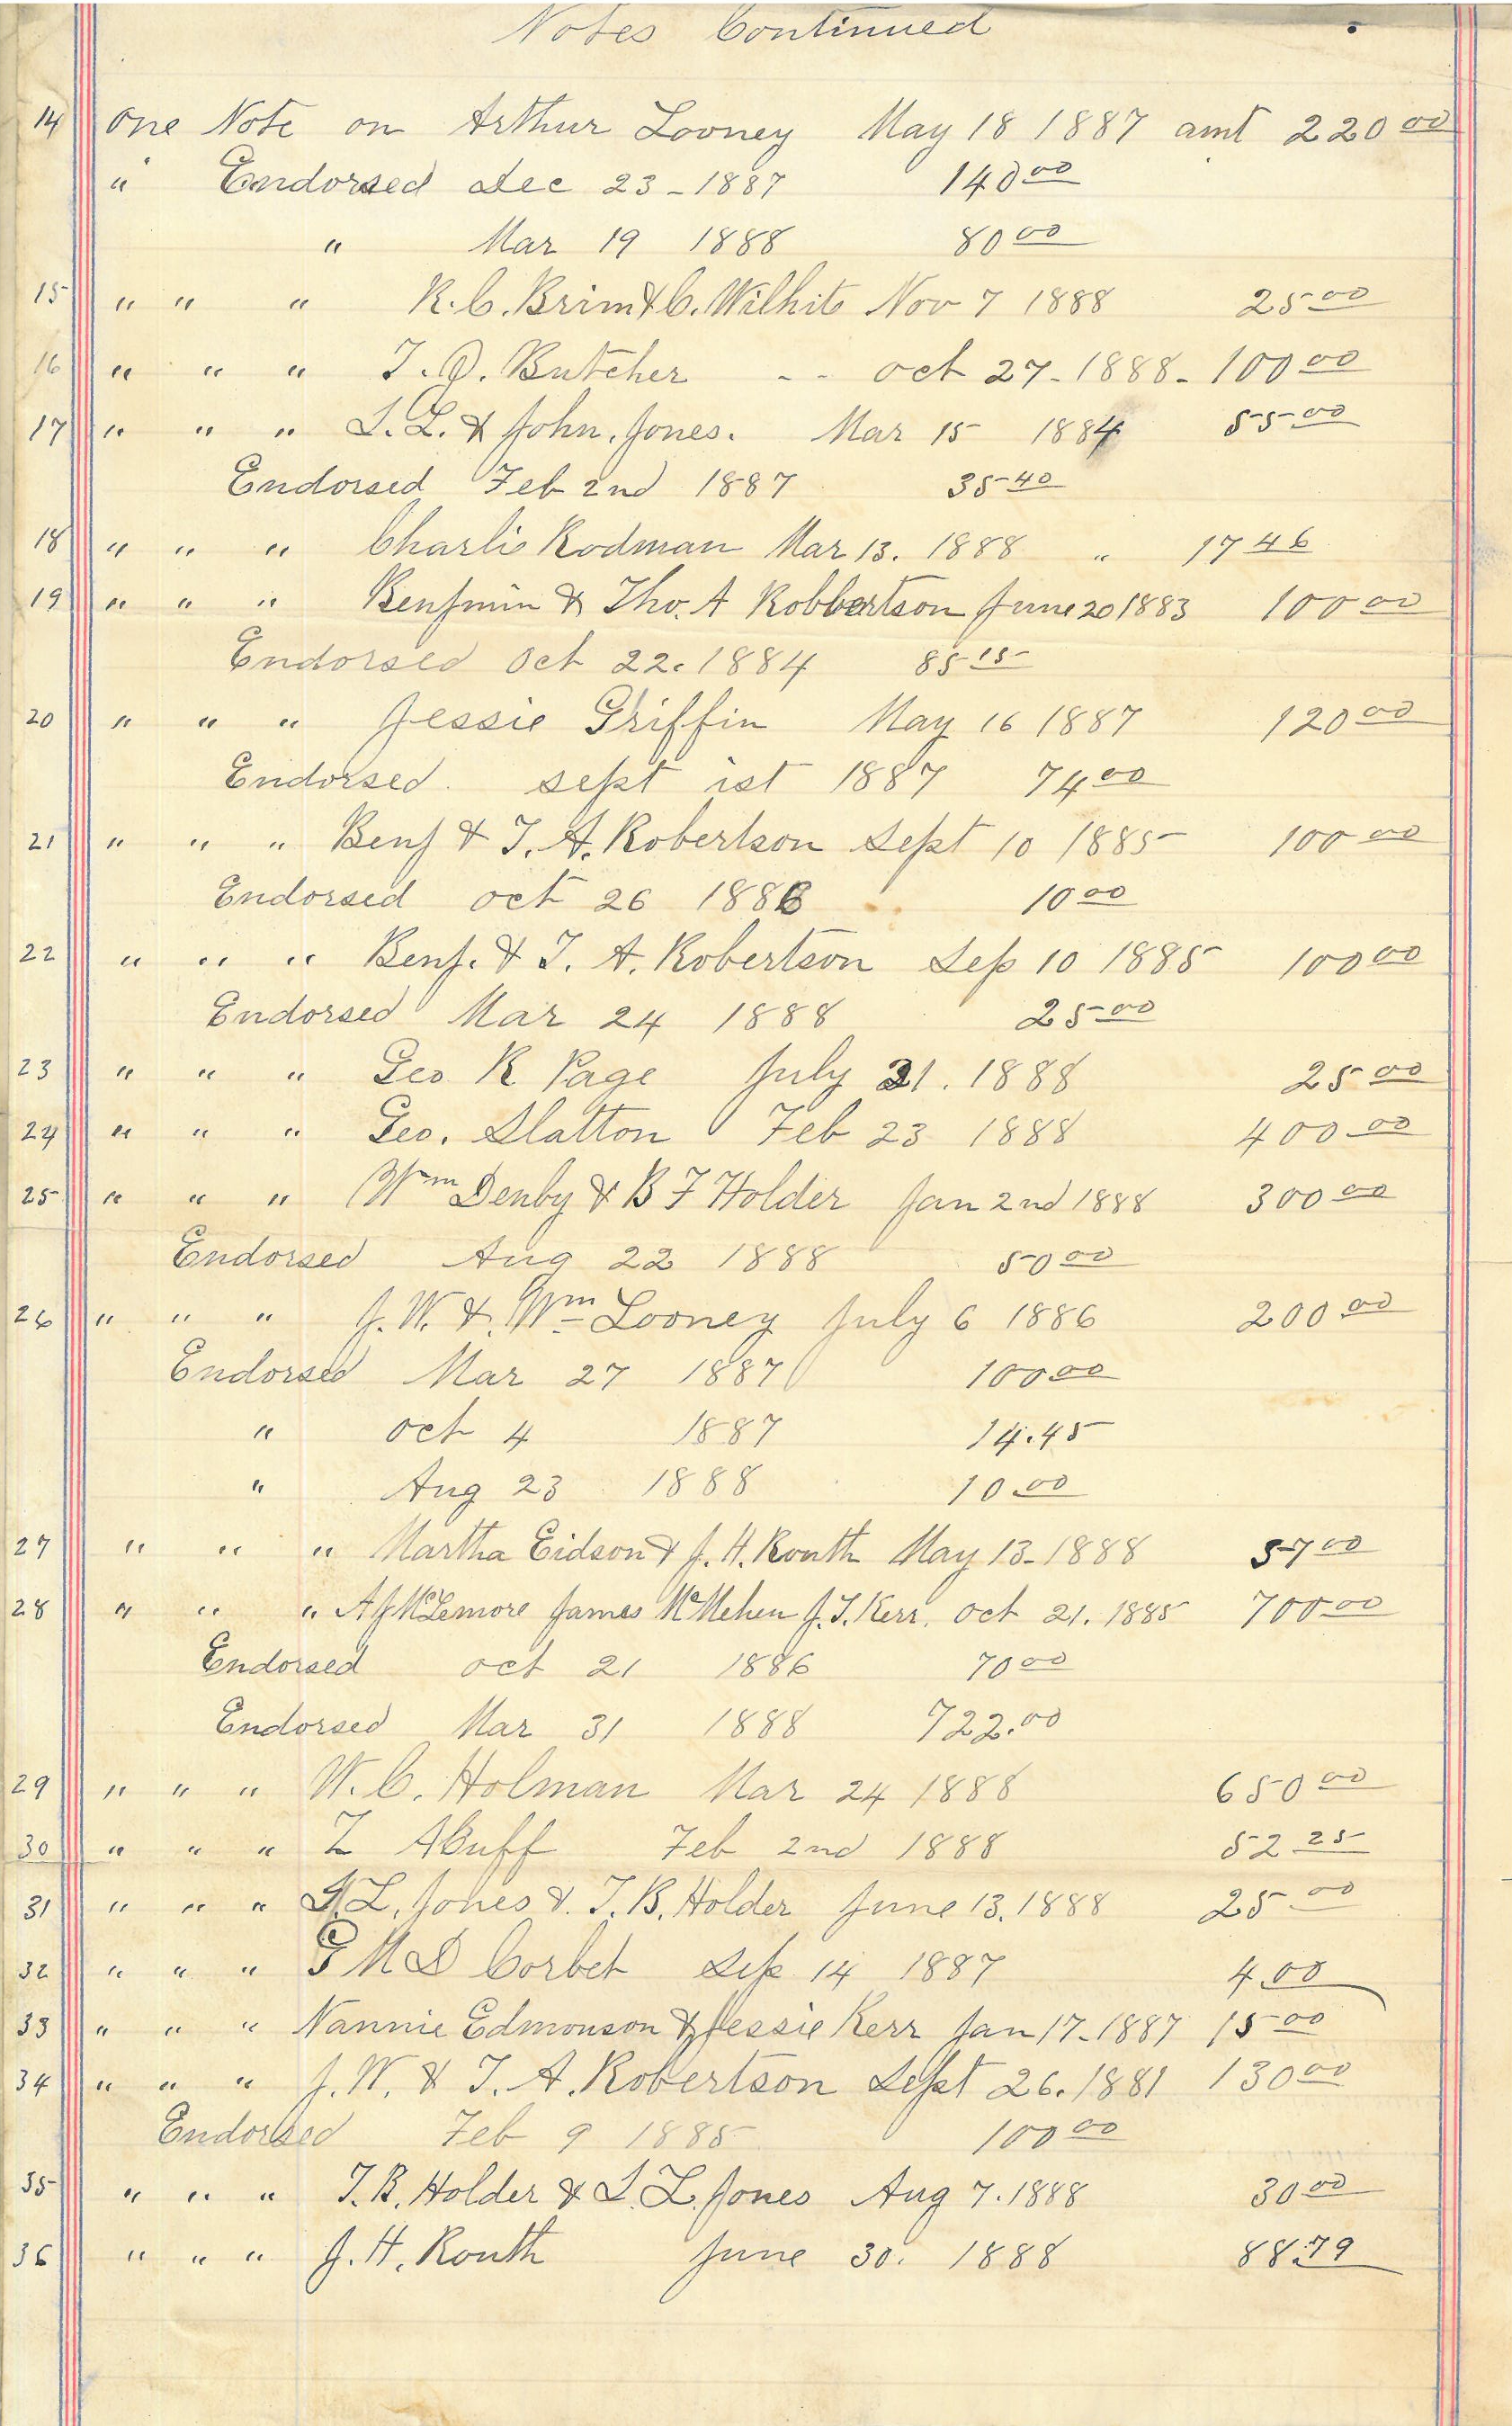 Notes Continued
14 one Note on Arthur Looney May 18 1887 amt 220 00
" Endorsed Dec 23 - 1887 140 00
" Mar 19 1888 80 00
15 " " " R. C. Brim & C. Wilhite Nov 7 1888 25 00
16 " " " T. Q. Butcher - - oct 27 - 1888 - 100 00
17 " " " S. L. & John. Jones. Mar 15 1884 55 00
Endorsed Feb 2nd 1887 35 40
18 " " " Charlie Rodman Mar 13. 1888 " 17 46
19 " " " Benjmin & Tho. A Robbertson June 20 1883 100 00
Endorsed Oct 22. 1884 85 15
20 " " " Jessie Griffin May 16 1887 120 00
Endorsed. sept ist 1887 74 00
21 " " " Benj & T. A. Robertson Sept 10 1885 100 00
Endorsed oct 26 1886 10 00
22 " " " Benj. & T. A. Robertson Sep 10 1885 100 00
Endorsed Mar 24 1888 25 00
23 " " " Geo R Page July 21. 1888 25 00
24 " " " Geo. Slatton Feb 23 1888 400 00
25 " " " Wm Denby & B F Holder Jan 2nd 1888 300 00
Endorsed Aug 22 1888 50 00
26 " " " J. W. & Wm Looney July 6 1886 200 00
Endorsed Mar 27 1887 100 00
" oct 4 1887 14.45
" Aug 23 1888 10.00
27 " " " Martha Eidson & J. H. Routh May 13 - 1888 57 00
28 " " " A J McLemore James McMehen J. T. Kerr. oct 21. 1885 700 00
Endorsed oct 21 1886 70 00
Endorsed Mar 31 1888 722.00
29 " " " W. C. Holman Mar 24 1888 650 00
30 " " " Z ABuff Feb 2nd 1888 52 25
31 " " " S. L. Jones & T. B. Holder June 13. 1888 25 00
32 " " " G M D Corbet Sep 14 1887 4.00
33 " " " Nannie Edmonson & Jessie Kerr Jan 17 - 1887 15 00
34 " " " J. W. & T. A. Robertson Sept 26. 1881 130 00
Endorsed Feb 9 1885 100 00
35 " " " T. B. Holder & S. L. Jones Aug 7. 1888 30 00
36 " " " J. H. Routh June 30. 1888 88.79